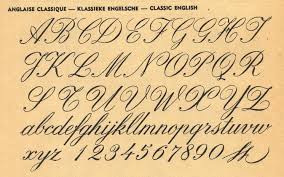 ANGLAISE CLASSIQUE — KLASSIEKE ENGELSCHE — CLASSIC ENGLISH
ABCDEFGHI
JKLMNOPQR
STUVWXYZ
abcdefghijklmnopqrstuvw
xyz 1234567890